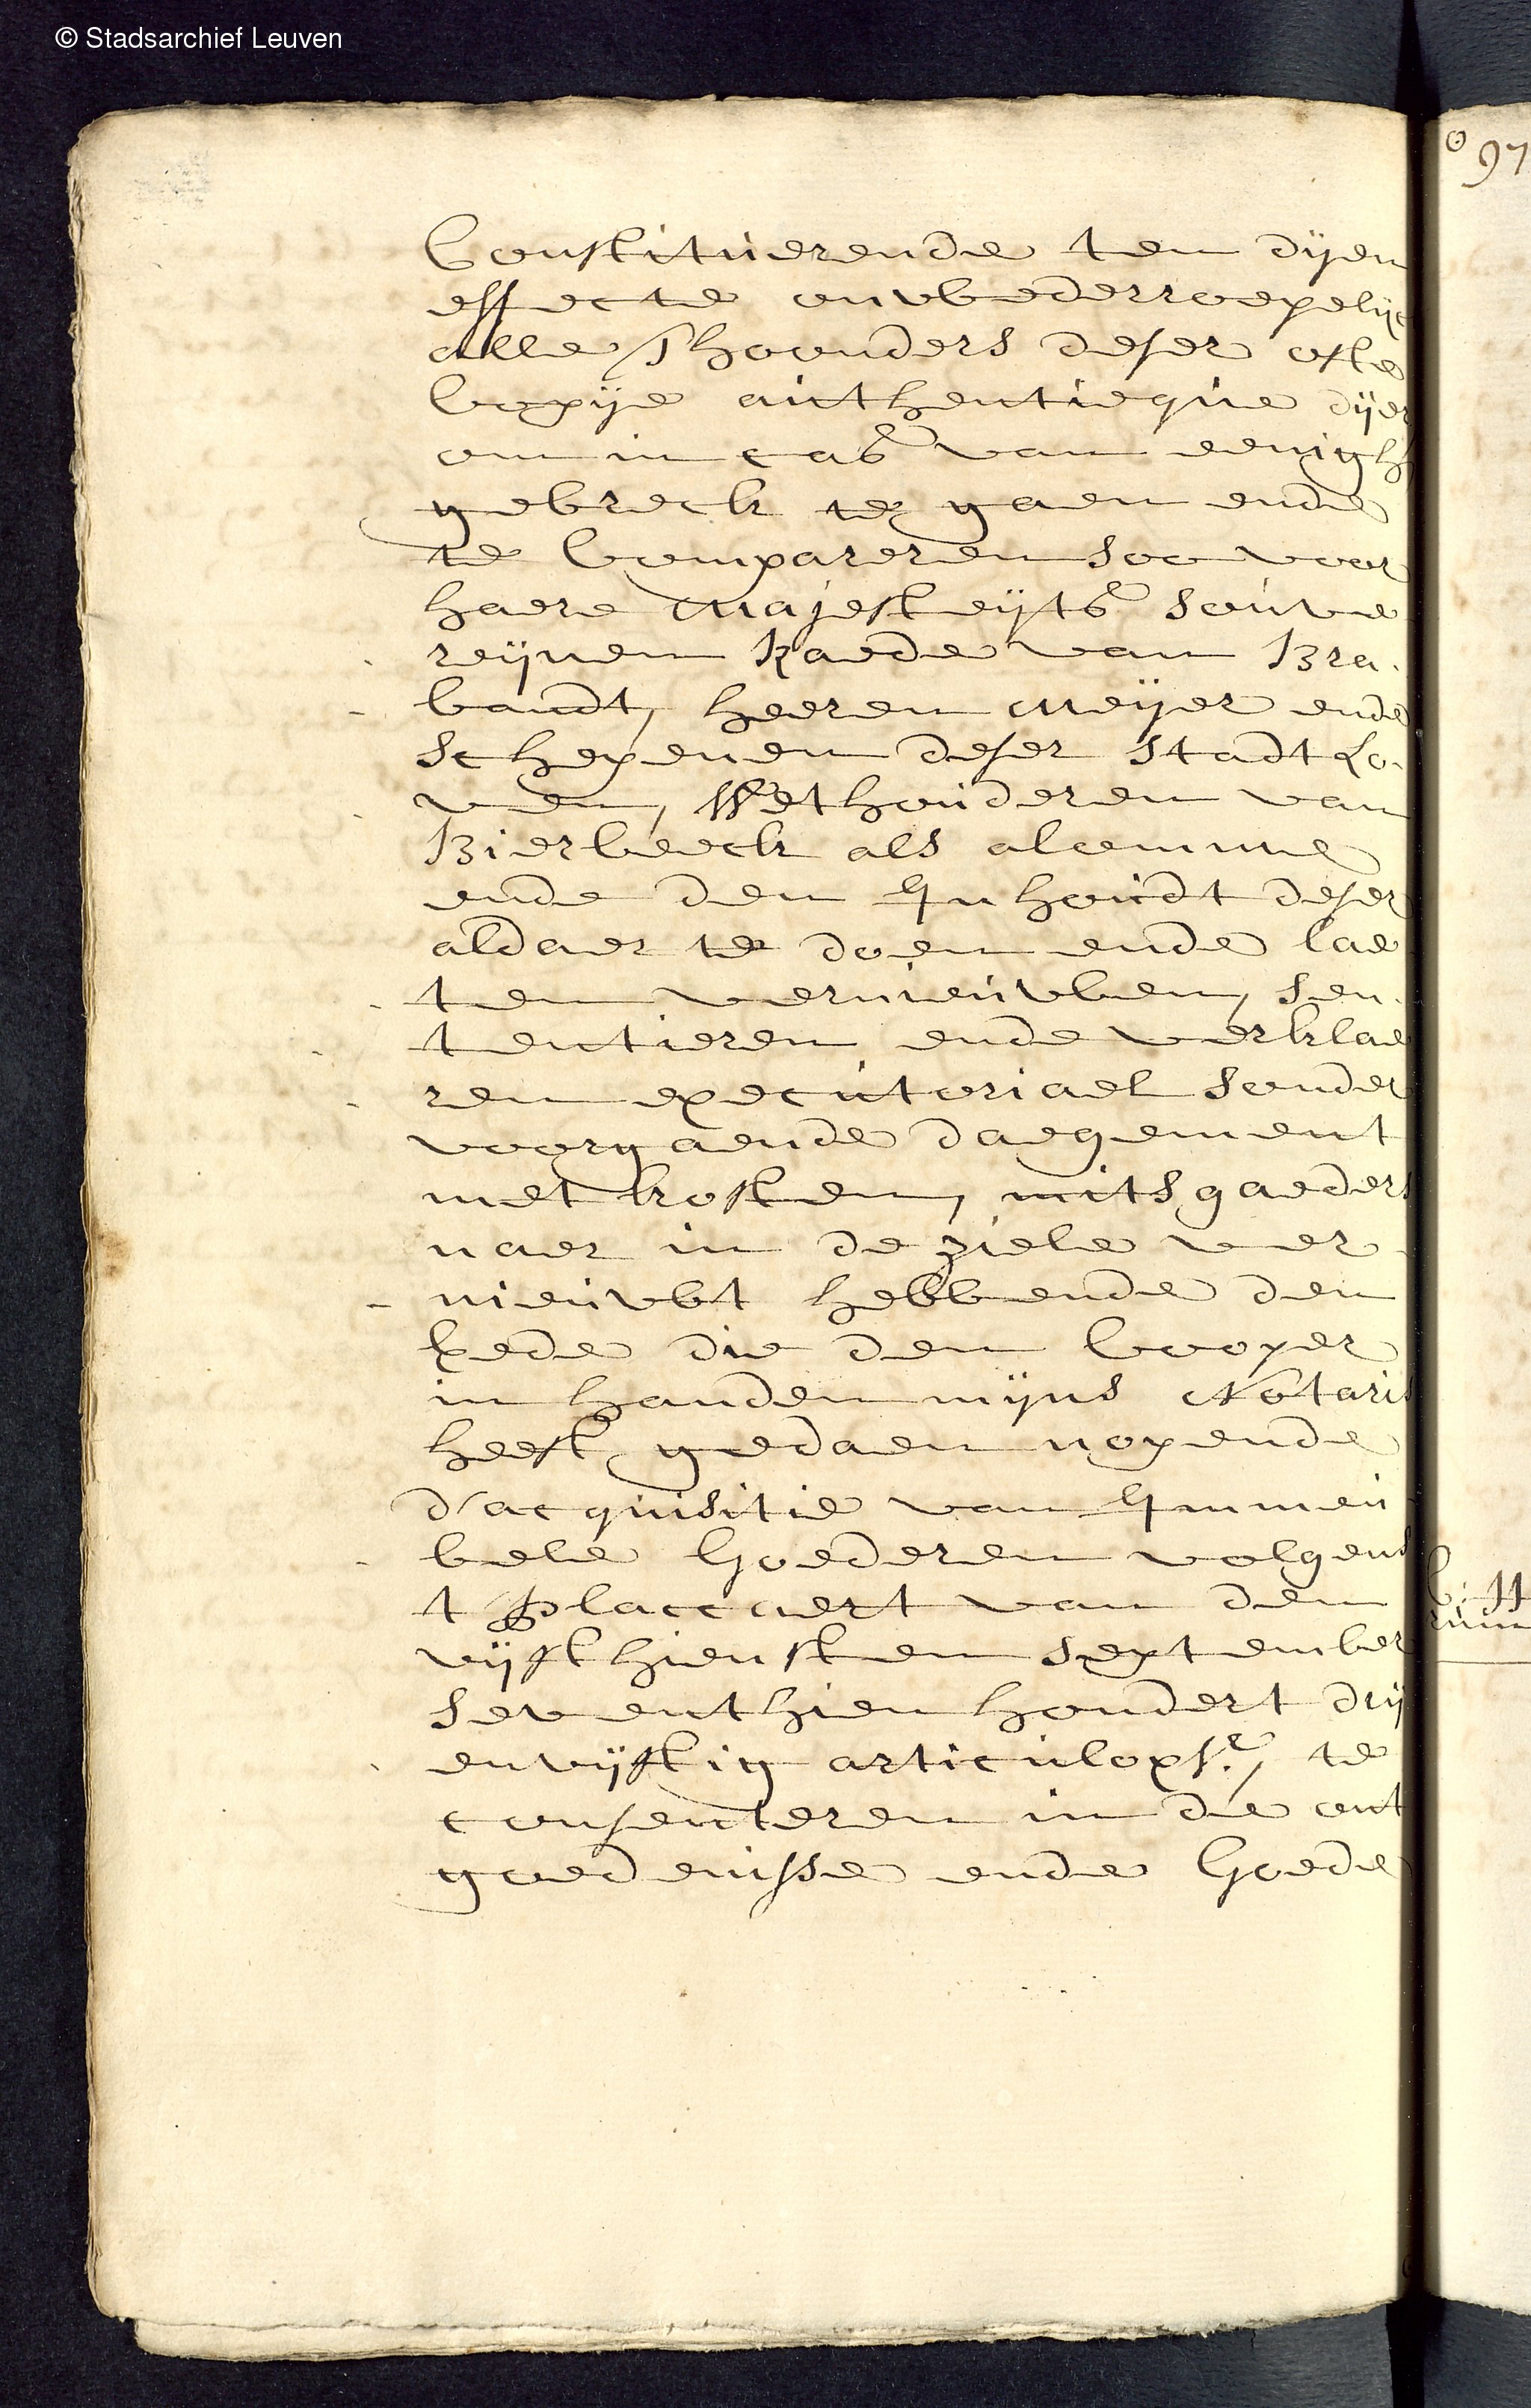 © Stadsarchief Leuven
97
Constituerende ten dÿen
effecte onwederroepelijc
alle Thoonders deser ofte
Copÿe authentieque dÿer
om in cas van eenigh
gebreck te gaen ende
te Compareren soo voor
haere Majesteÿts Souve
reÿnen Raede van Bra-
bandt, heeren Meÿer ende
Schepenen deser Stadt Lo-
ven, Wethouderen van
Bierbeeck als alomme
ende den Inhoudt deser
aldaer te doen ende lae
ten vernieuwen, sen-
tentieren ende verklae
ren executoriael sonder
voorgaende daegement
met kosten, mitsgaeders
naer in de ziele ver
nieuwt hebbende den
eede die den Cooper
in handen mÿns Notaris
heeft gedaen nopende
d'acquisitie van Immeu
bele Goederen volgens
t Placcaert van den
vÿfthiensten September
seventhien hondert drÿ
envÿftig articulo pr.e, te
consenteren in de ont
goedenisse ende Goede